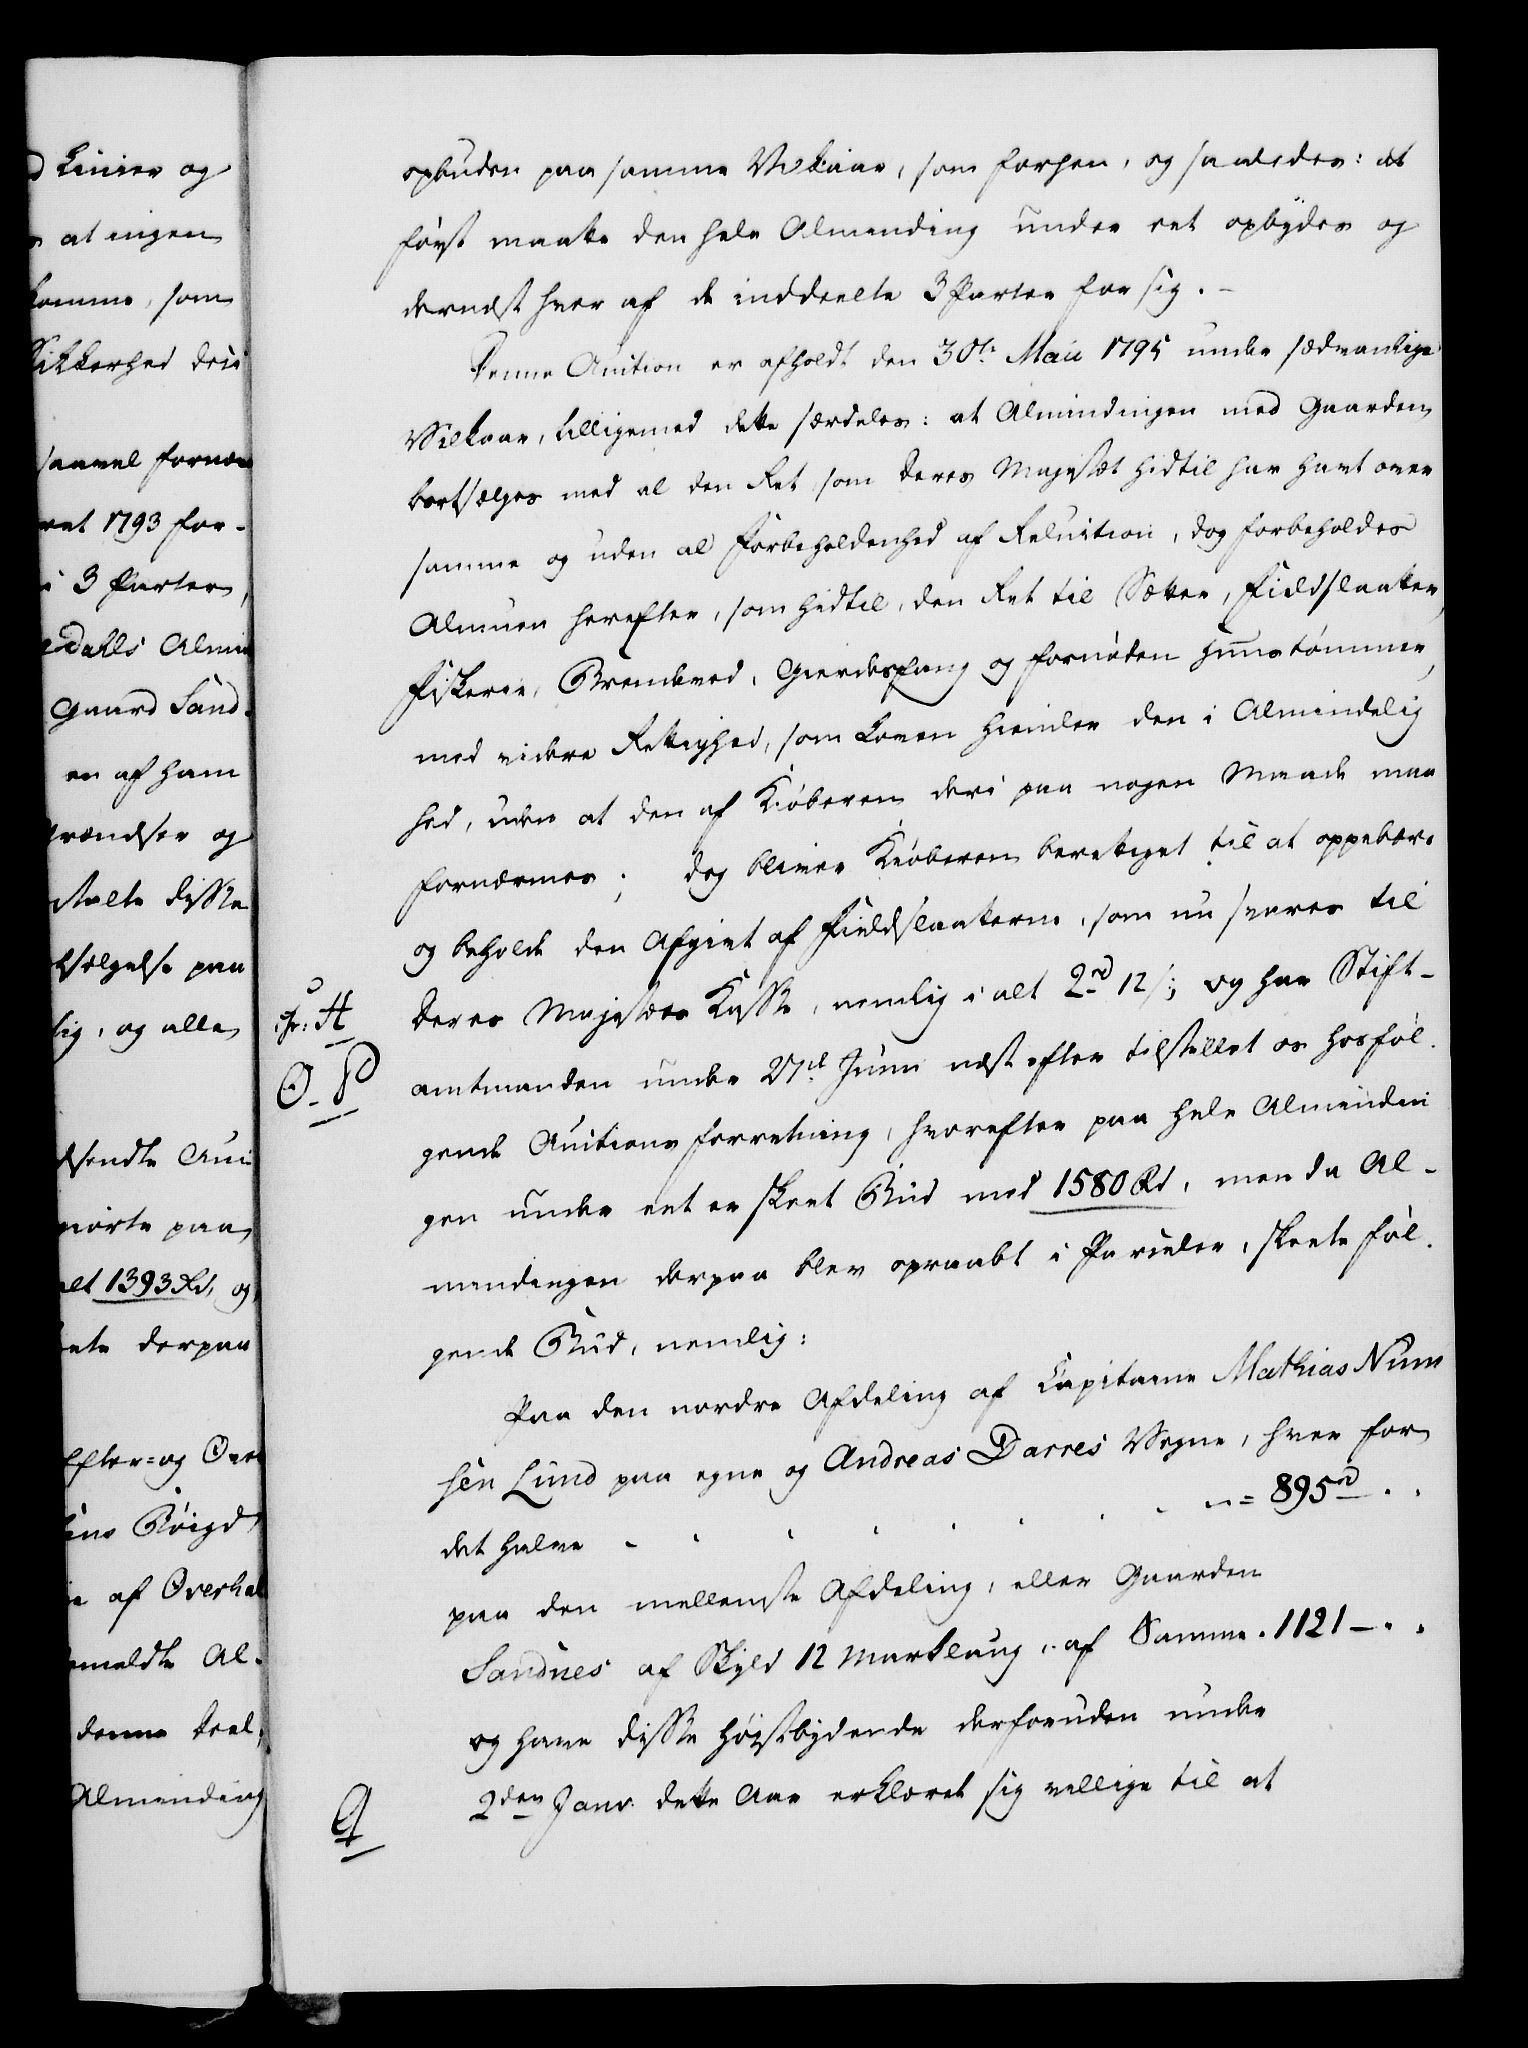 d Linier og
at ingen
komme, som
Sikkerhed deri
saavel fornæv
ret 1793 for-
i 3 Parter,
dahls Almin
Gaard Sand-
en af ham
Grændser og
stalte disse
lig, og alle
dsendte Auc
giorte paa
alt 1393 Rd, og
derpaa
Efter- og Over
Böigd
af Overhal
meldte Al-
denne Deel,
Almending
opbuden paa samme Vilkaar, som forhen, og saaledes: at
först maatte den hele Almending under eet opbydes og
dernæst hver af de inddeelte 3 Parter for sig. -
Denne Auction er afholdt den 30te Maii 1795 under sædvanlige
Vilkaar, tilligemed dette særdeles: at Almindingen med Gaarden
bortsælges med al den Ret, som Deres Majestæt hidtil har havt over
samme og uden al Forbeholdenhed af Reluition, dog forbeholdes
Almuen herefter, som hidtil, den Ret til Sætter, Fieldslaatter,
Fiskerie, Brændeved, Gierdesfang og fornöden Huustömmer,
med videre Rettighed, som Loven hiemler den i Almindelig
hed, uden at den af Kiöberen deri paa nogen Maade maa
fornærmes; dog bliver Kiöberen berettiget til at oppebære
og beholde den Afgivt af Fieldslaatterne, som nu svares til
Deres Majestæts Kasse, nemlig i alt 2rd 12 s; og har Stift-
H
O. P
amtmanden under 27d Junii næstefter tilstillet os hosföl-
gende Auctions Forretning, hvorefter paa hele Almindin
gen under eet er skeet Bud med 1580 Rd, men da Al-
mendingen derpaa blev opraabt i Parceler, skeete föl-
gende Bud, nemlig:
Paa den nordre Afdeling af Capitaine Mathias Num
sen Lund paa egne og Andreas Darres Vegne, hver for
det halve - - - - - - 895rd - -
paa den mellemste Afdeling, eller Gaarden
Sandnes af Skyld 12 Marklaug, af Samme . 1121 - . .
og have disse höistbydende derforuden under
2den Janv. dette Aar erklæret sig villige til at
Q